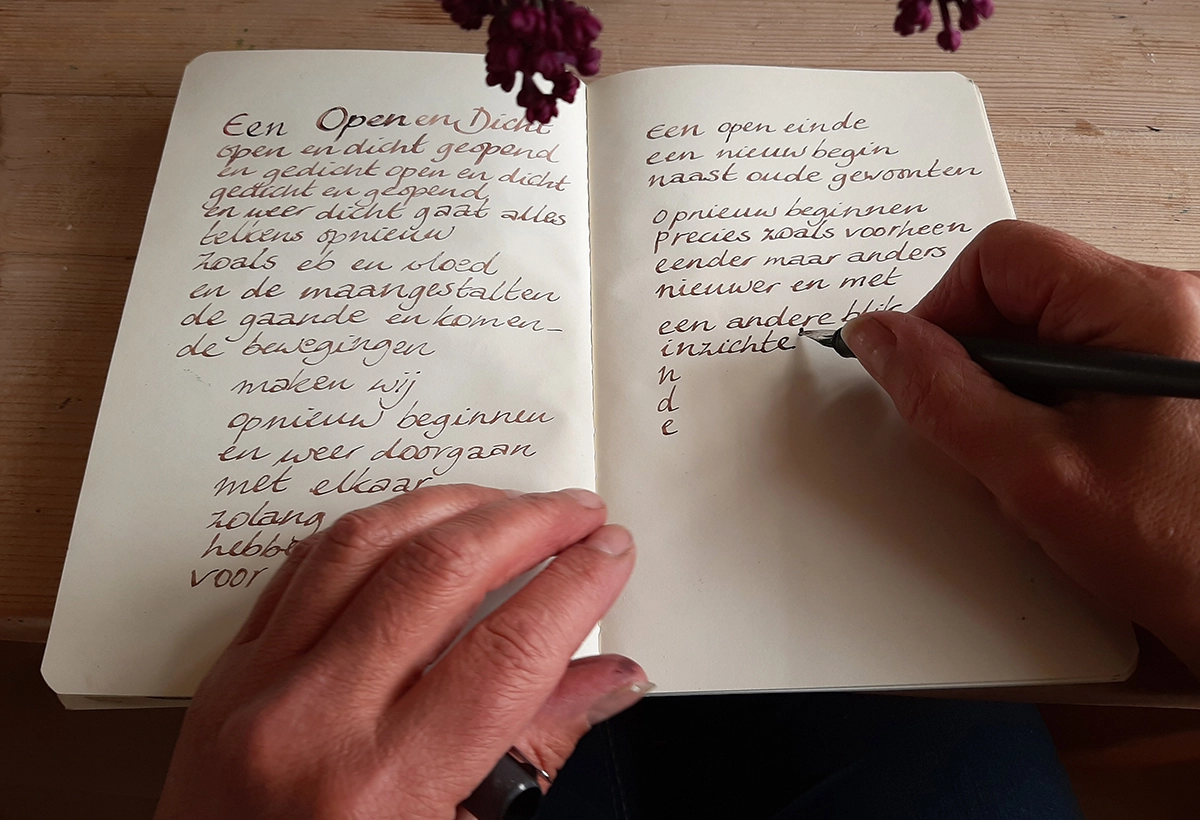 Een Open en Dicht
open en dicht geopend
en gedicht open en dicht
gedicht en geopend
en weer dicht gaat alles
telkens opnieuw
zoals eb en vloed
en de maangestalten
de gaande en komen-
de bewegingen
maken wij
opnieuw beginnen
en weer doorgaan
met elkaar
zolang
voor
Een open einde
een nieuw begin
naast oude gewoonten
opnieuw beginnen
precies zoals voorheen
eender maar anders
nieuwer en met
een andere blik
inzichte
n
d
e